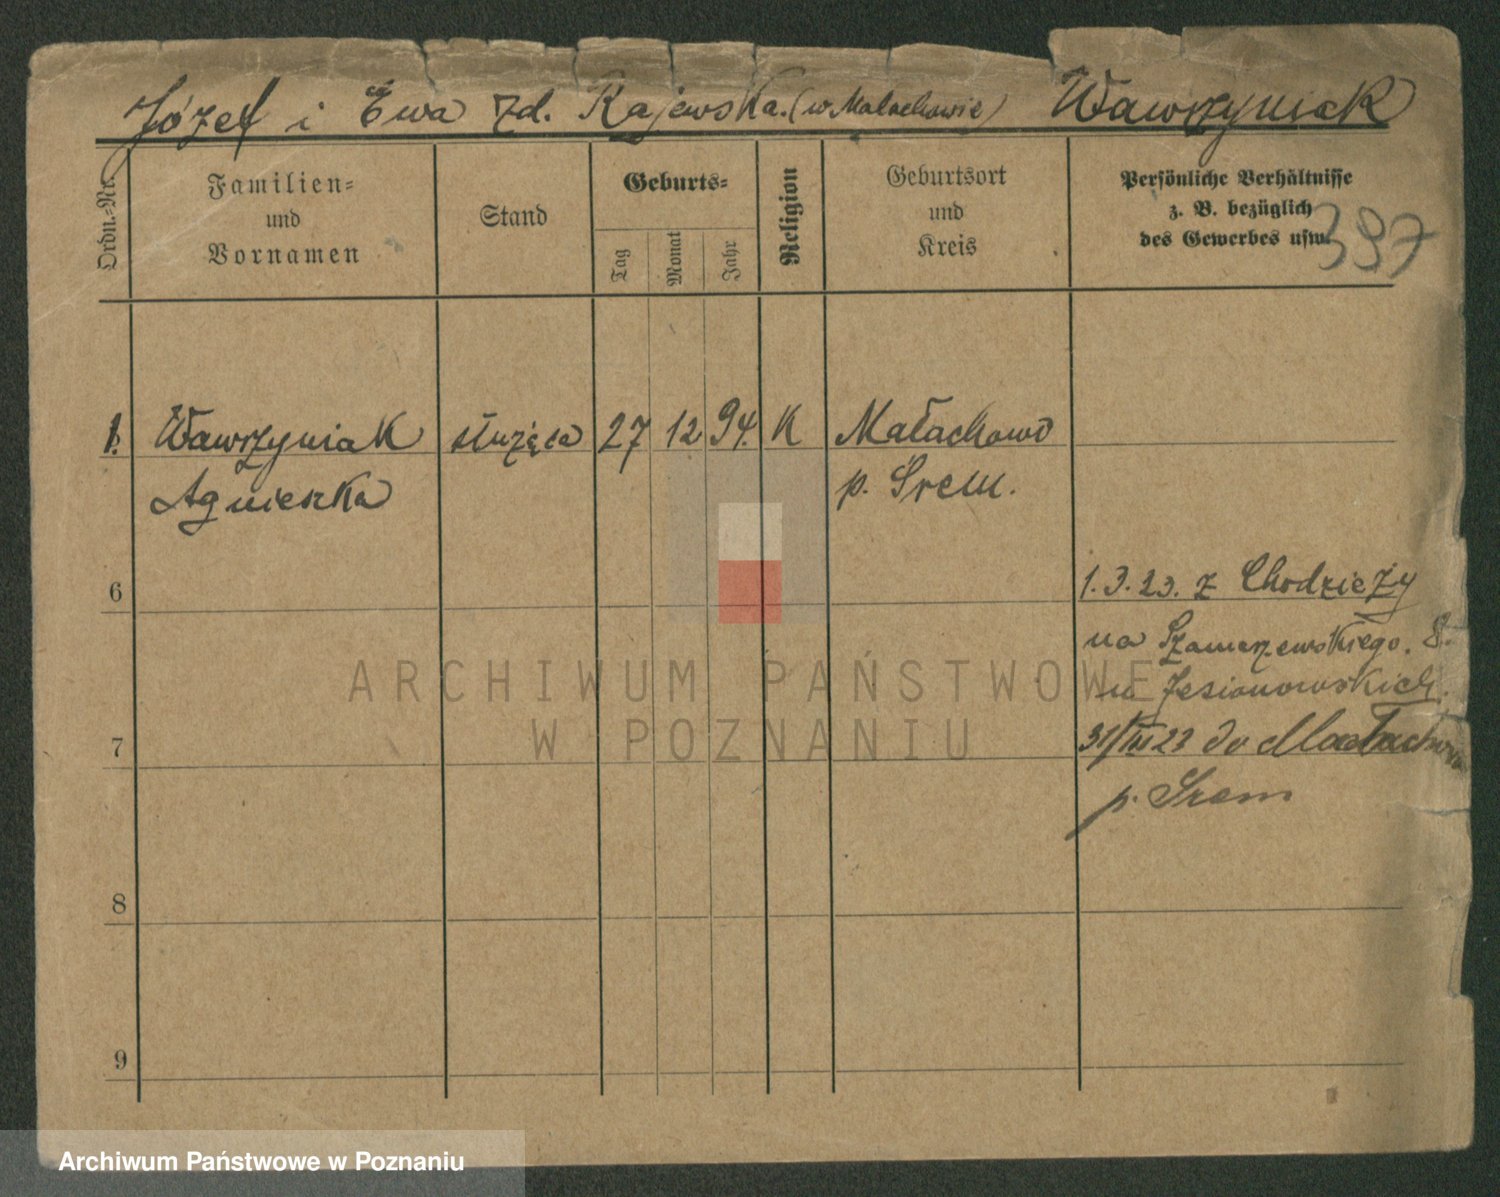 Józef i Ewa zd. Rajewska. (w Małachowie) Wawrzyniak
Ordn.-Nr.
Familien-
und
Vornamen
Stand
Geburts-
Tag
Monat
Jahr
Religion
Geburtsort
und
Kreis
Persönliche Verhältnisse
z. B. bezüglich
des Gewerbes usw.
397
1. Wawrzyniak służąca 27 12 94. K Małachowo
Agnieszka p. Śrem.
6 1.3.23. z Chodzieży
na Szamarzewskiego. 8.
u Jesionowskich.
7 31/III 23 do Małachowa
p. Śrem
8
9
ARCHIWUM PAŃSTWOWE
W POZNANIU
Archiwum Państwowe w Poznaniu